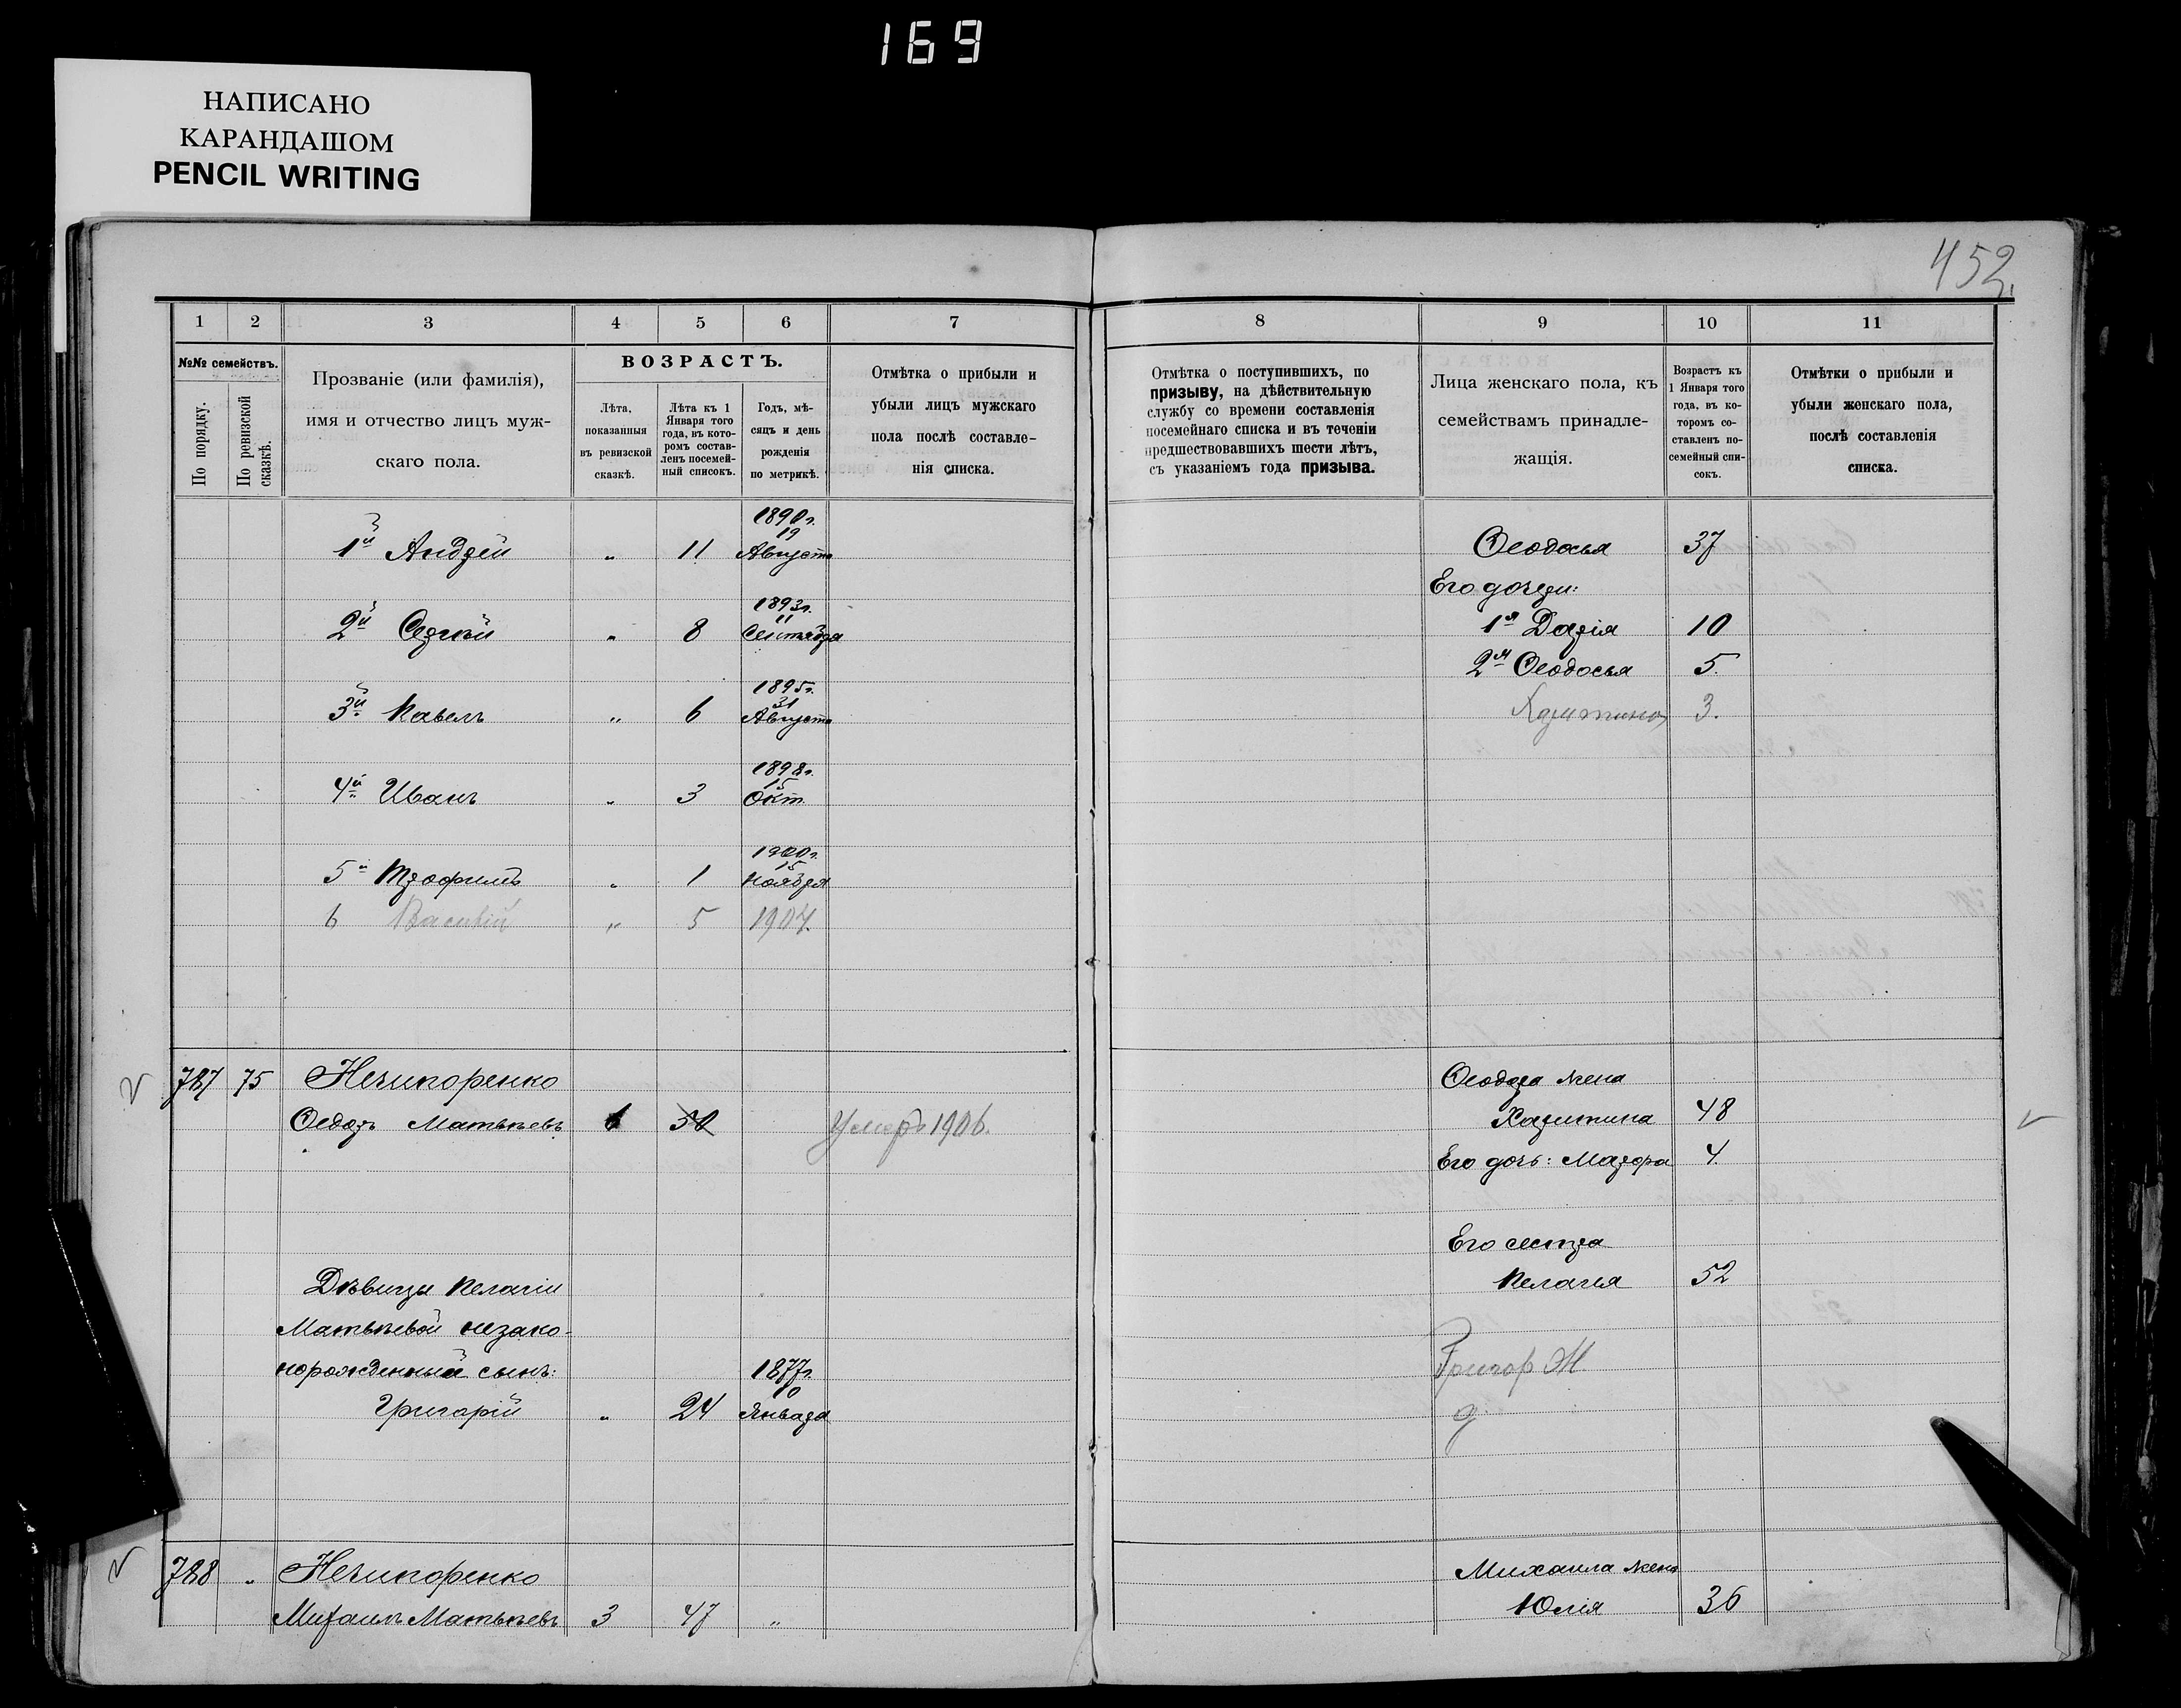 169
НАПИСАНО
КАРАНДАШОМ
PENCIL WRITING
452.
1 2 3 4 5 6 7
№№ семействъ.
По порядку.
По ревизской сказкѣ.
Прозваніе (или фамилія),
имя и отчество лицъ муж-
скаго пола.
ВОЗРАСТЪ.
Лѣта,
показанныя
въ ревизской
сказкѣ.
Лѣта къ 1
Января того
года, въ кото-
ромъ состав-
ленъ посемей-
ный списокъ.
Годъ, мѣ-
сяцъ и день
рожденія
по метрикѣ.
Отмѣтка о прибыли и
убыли лицъ мужскаго
пола послѣ составле-
нія списка.
8 9 10 11
Отмѣтка о поступившихъ, по
призыву, на дѣйствительную
службу со времени составленія
посемейнаго списка и въ теченіи
предшествовавшихъ шести лѣтъ,
съ указаніемъ года призыва.
Лица женскаго пола, къ
семействамъ принадле-
жащія.
Возрастъ къ
1 Января того
года, въ ко-
торомъ со-
ставленъ по-
семейный спи-
сокъ.
Отмѣтки о прибыли и
убыли женскаго пола,
послѣ составленія
списка.
1890 г.
19
1й Андрей " 11 Августа
1893 г.
11
2й Сергѣй " 8 Сентября
1895 г.
31
3й Павелъ " 6 Августа
1898 г.
15
4й Иванъ " 3 Окт.
1900 г.
15
5й Трофимъ " 1 Ноября
6 Василій " 5 1904.
Ѳеодосья 37
Его дочери:
1я Дарія 10
2я Ѳеодосья 5.
Харитина 3.
787 75 Нечипоренко
Ѳедоръ Матвѣевъ 6 50 Умеръ 1906.
Дѣвицы Пелагіи
Матвѣевой незако-
норожденный сынъ:
1877 г.
10
Григорій " 24 Января
Ѳеодора жена
Харитина 48
Его дочь: Марфа 4.
Его сестра
Пелагея 52
Григор Ж
д
788 " Нечипоренко
Михаилъ Матвѣевъ 3 47 "
Михаила жена
Юлія 36